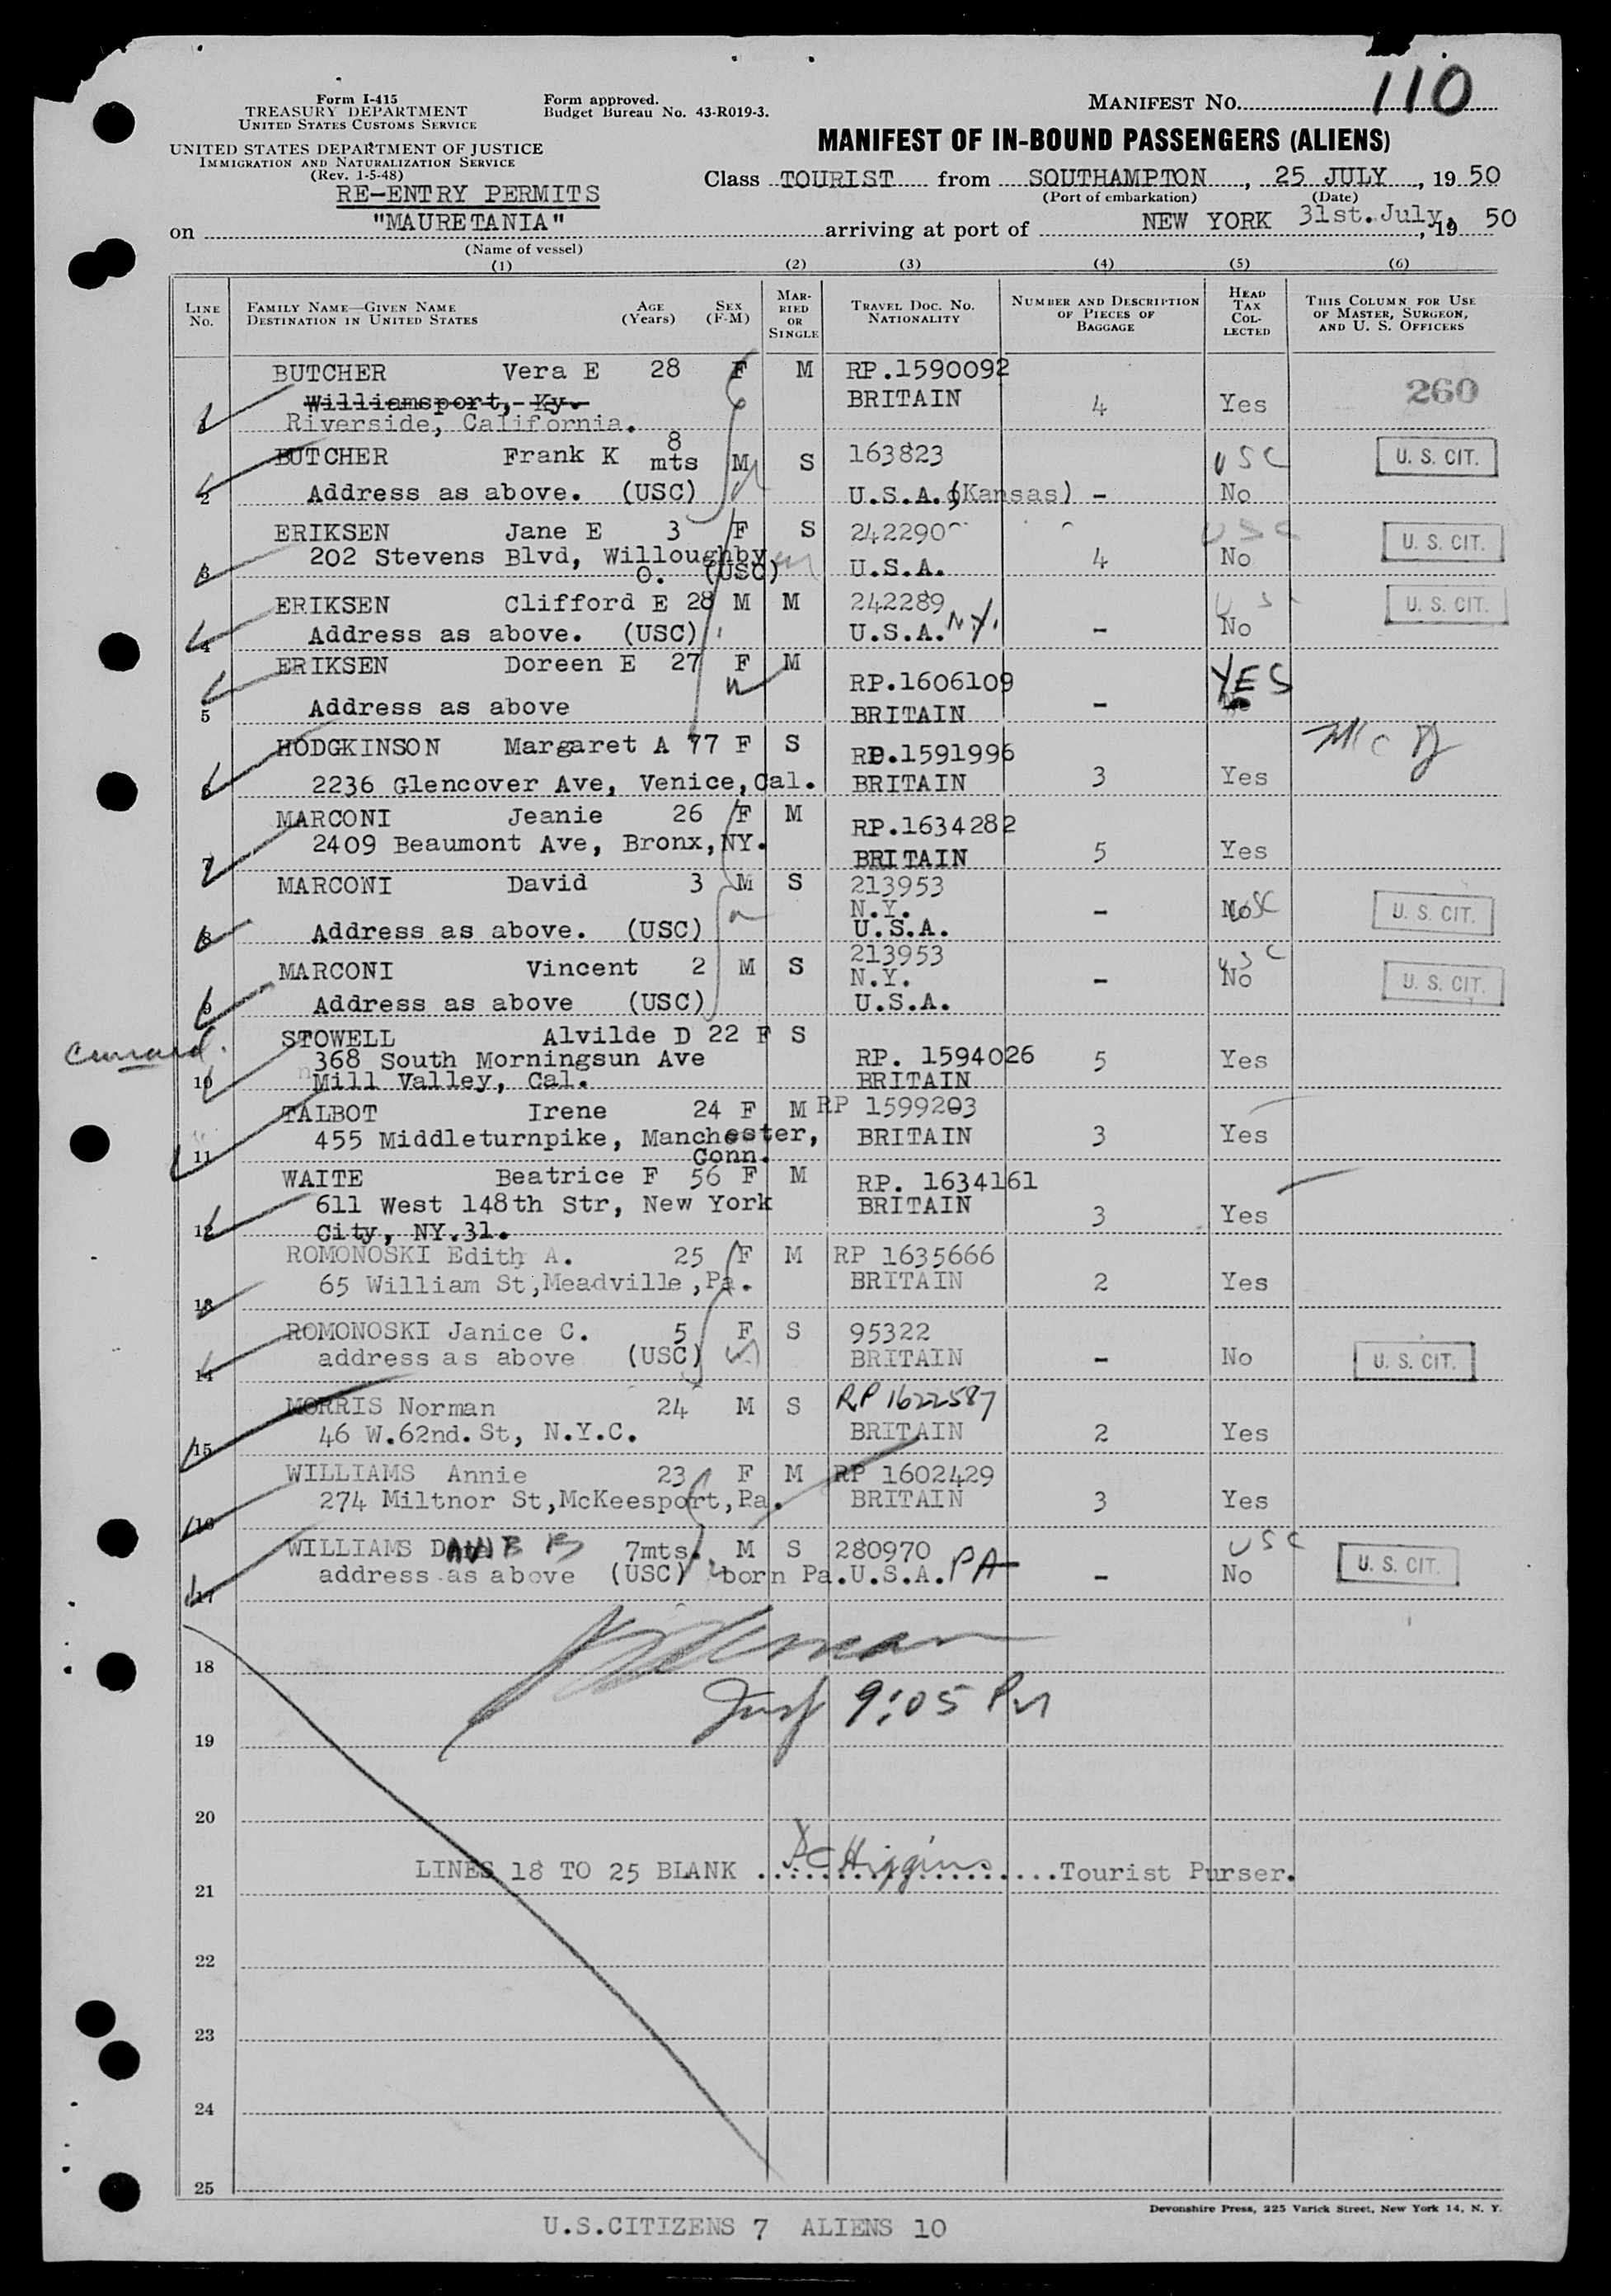 110
Form I-415
TREASURY DEPARTMENT
UNITED STATES CUSTOMS SERVICE
Form approved.
Budget Bureau No. 43-R019-3.
MANIFEST NO.
UNITED STATES DEPARTMENT OF JUSTICE
IMMIGRATION AND NATURALIZATION SERVICE
(Rev. 1-5-48)
MANIFEST OF IN-BOUND PASSENGERS (ALIENS)
RE-ENTRY PERMITS
Class TOURIST from SOUTHAMPTON, 25 JULY, 19 50
(Port of embarkation) (Date)
on "MAURETANIA" arriving at port of NEW YORK 31st. July, 19 50
(Name of vessel)
(1) (2) (3) (4) (5) (6)
LINE No. FAMILY NAME—GIVEN NAME DESTINATION IN UNITED STATES AGE (Years) SEX (F-M) MARRIED OR SINGLE TRAVEL DOC. NO. NATIONALITY NUMBER AND DESCRIPTION OF PIECES OF BAGGAGE HEAD TAX COLLECTED THIS COLUMN FOR USE OF MASTER, SURGEON, AND U. S. OFFICERS
BUTCHER Vera E 28 F M RP.1590092
Williamsport, Ky. BRITAIN 4 Yes 260
1 Riverside, California.
BUTCHER Frank K 8 mts M S 163823 USC U. S. CIT.
2 Address as above. (USC) U.S.A. (Kansas) - No
ERIKSEN Jane E 3 F S 242290 USC U. S. CIT.
3 202 Stevens Blvd, Willoughby O. (USC) U.S.A. 4 No
ERIKSEN Clifford E 28 M M 242289 U. S. CIT.
4 Address as above. (USC) U.S.A. N.Y. - No
ERIKSEN Doreen E 27 F M RP.1606109 YES
5 Address as above BRITAIN -
HODGKINSON Margaret A 77 F S RP.1591996
6 2236 Glencover Ave, Venice, Cal. BRITAIN 3 Yes
MARCONI Jeanie 26 F M RP.1634282
7 2409 Beaumont Ave, Bronx, NY. BRITAIN 5 Yes
MARCONI David 3 M S 213953
N.Y. - No USC U. S. CIT.
8 Address as above. (USC) U.S.A.
MARCONI Vincent 2 M S 213953 USC
N.Y. - No U. S. CIT.
9 Address as above (USC) U.S.A.
Cunard.
STOWELL Alvilde D 22 F S
368 South Morningsun Ave RP. 1594026 5 Yes
10 Mill Valley, Cal. BRITAIN
TALBOT Irene 24 F M RP 1599203
455 Middleturnpike, Manchester, BRITAIN 3 Yes
11 Conn.
WAITE Beatrice F 56 F M RP. 1634161
611 West 148th Str, New York BRITAIN 3 Yes
12 City, NY.31.
ROMONOSKI Edith A. 25 F M RP 1635666
65 William St, Meadville, Pa. BRITAIN 2 Yes
13
ROMONOSKI Janice C. 5 F S 95322
address as above (USC) BRITAIN - No U. S. CIT.
14
MORRIS Norman 24 M S RP 1622587
46 W.62nd. St, N.Y.C. BRITAIN 2 Yes
15
WILLIAMS Annie 23 F M RP 1602429
274 Miltnor St, McKeesport, Pa. BRITAIN 3 Yes
16
WILLIAMS DAVID B 7mts. M S 280970 USC
address as above (USC) born Pa. U.S.A. PA - No U. S. CIT.
17
18
9:05 PM
19
20
LINES 18 TO 25 BLANK Higgins Tourist Purser.
21
22
23
24
25
Devonshire Press, 225 Varick Street, New York 14, N. Y.
U.S.CITIZENS 7 ALIENS 10